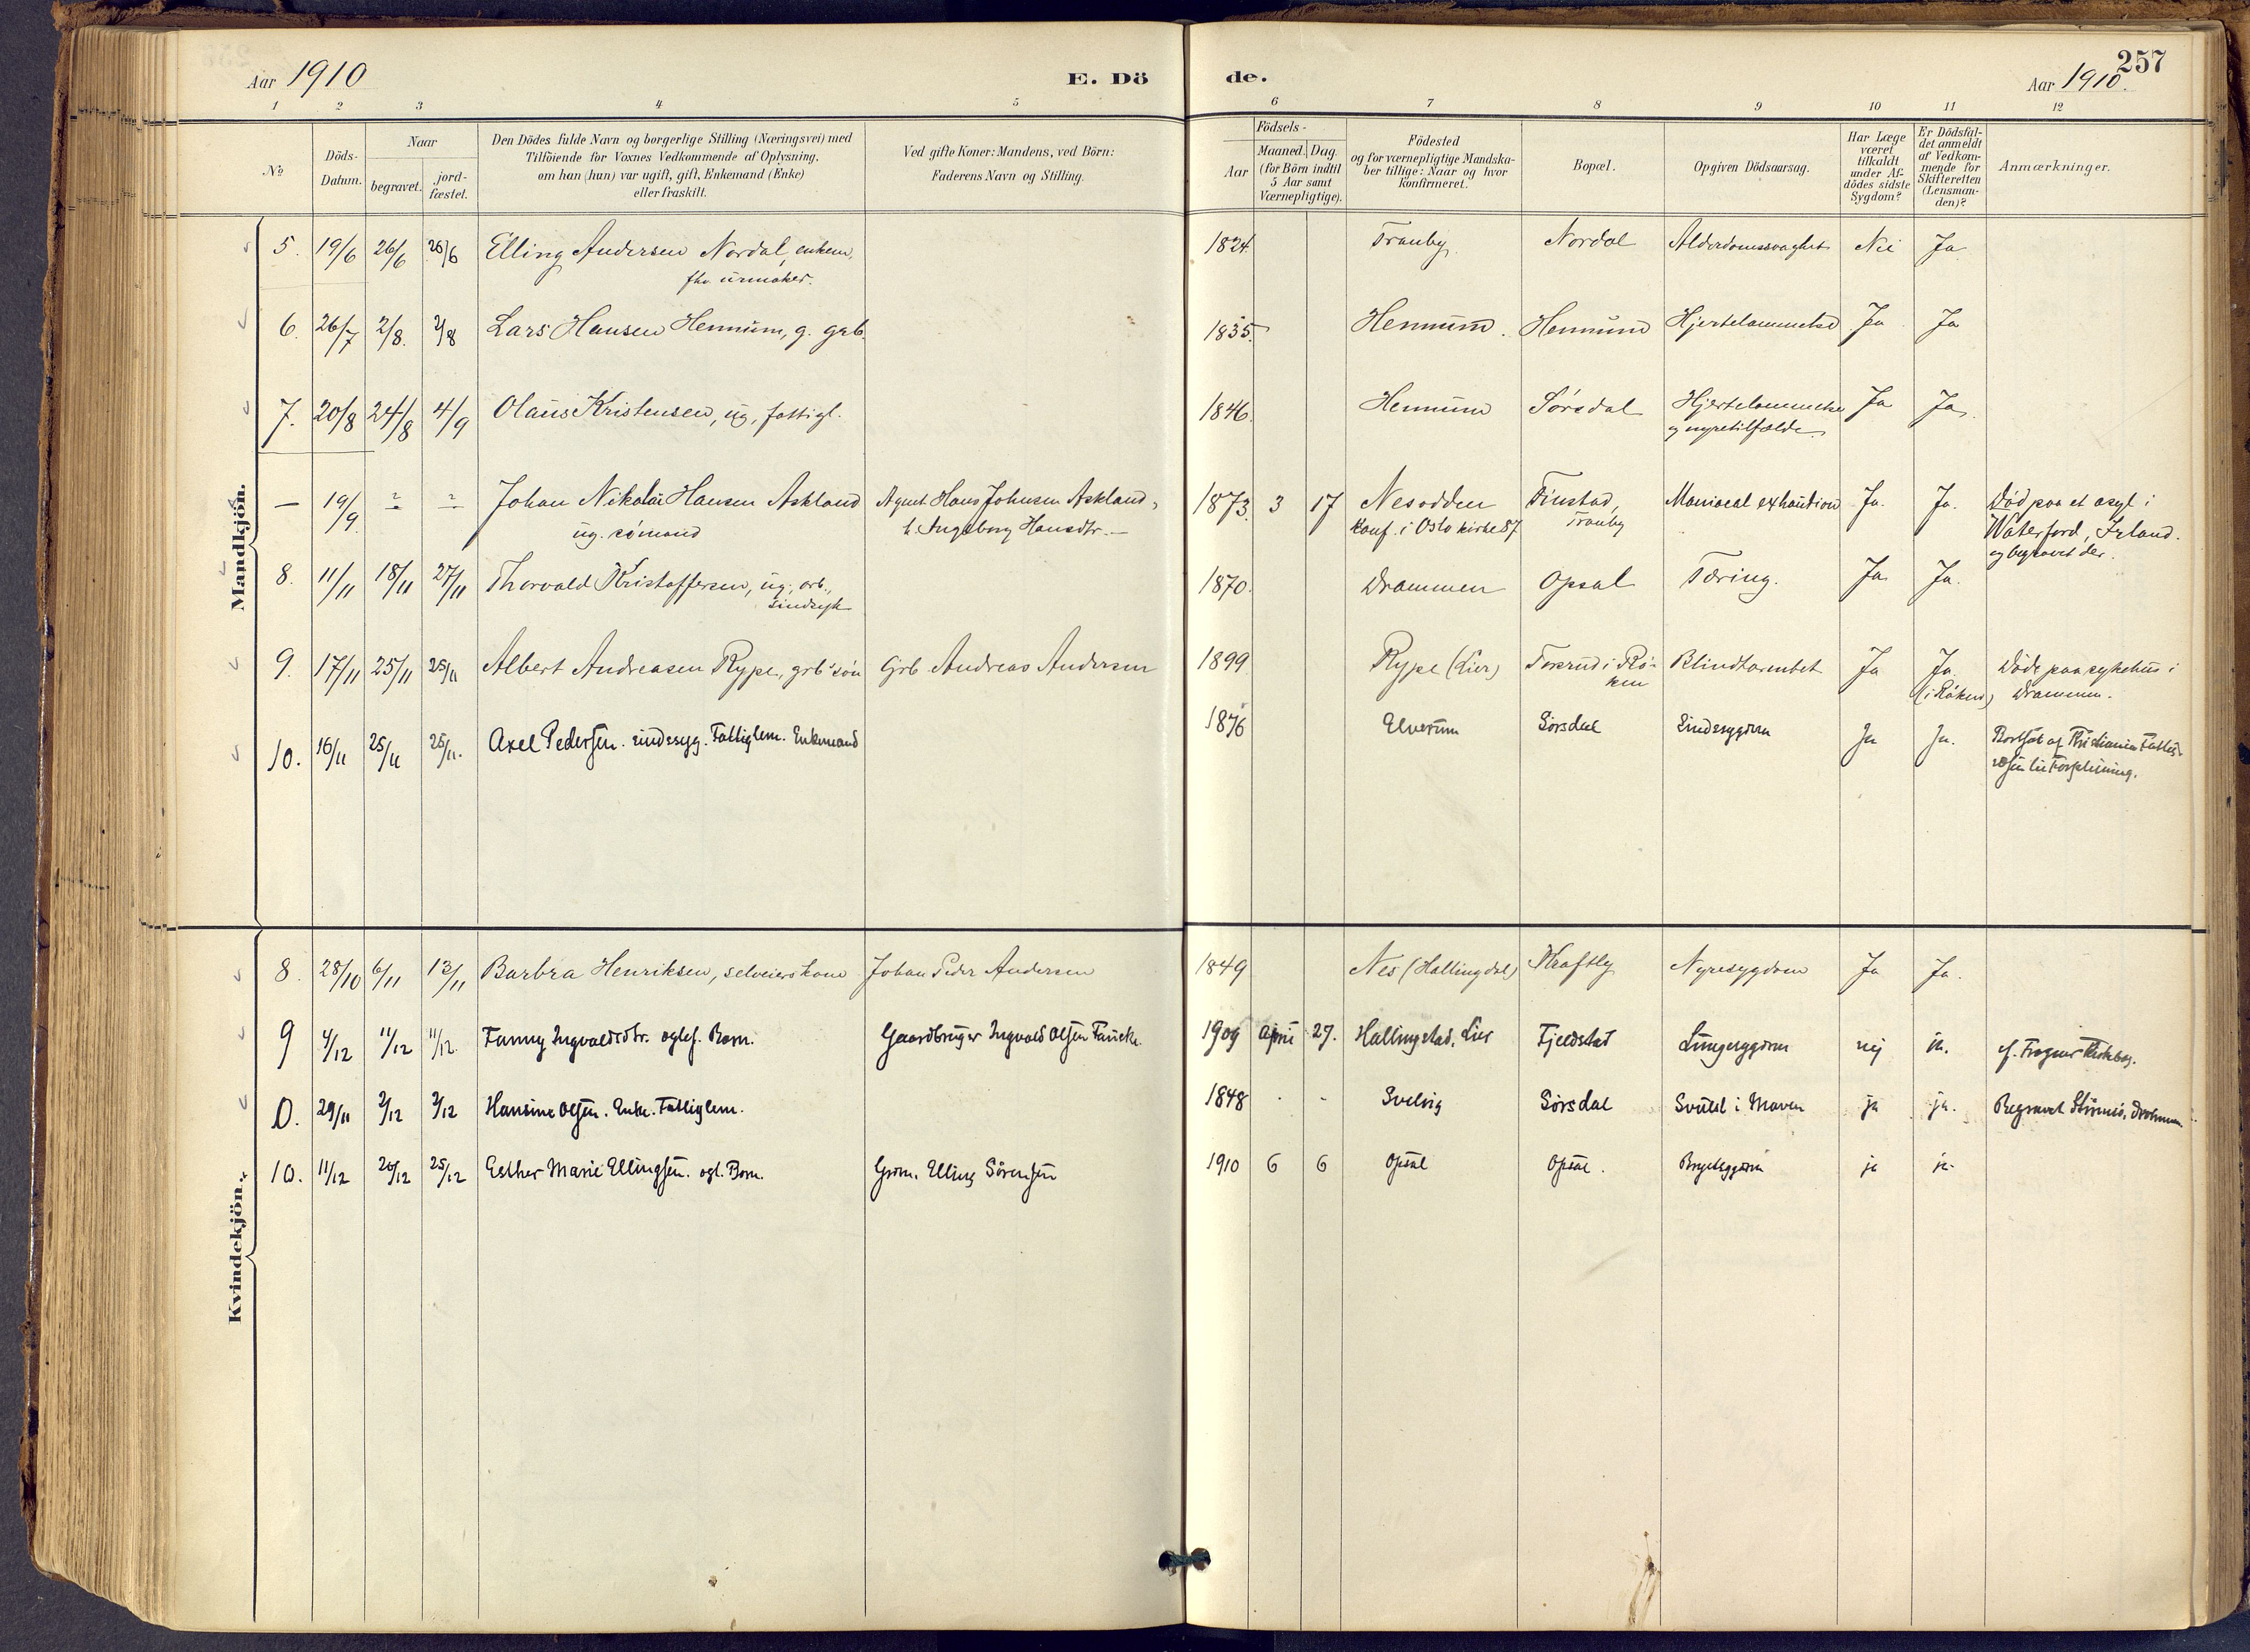 257
Aar 1910
E. Dö
de.
Aar 1910.
1 2 3 4 5 6 7 8 9 10 11 12
No
Döds-
Datum.
Naar
begravet.
jord-
fæstet.
Den Dödes fulde Navn og borgerlige Stilling (Næringsvei) med
Tilföiende for Voxnes Vedkommende af Oplysning,
om han (hun) var ugift, gift, Enkemand (Enke)
eller fraskilt.
Ved gifte Koner: Mandens, ved Börn:
Faderens Navn og Stilling.
Födsels-
Aar
Maaned. Dag.
(for Börn indtil
5 Aar samt
Værnepligtige).
Födested
og for værnepligtige Mandska-
ber tillige: Naar og hvor
konfirmeret.
Bopæl.
Opgiven Dödsaarsag.
Har Læge
været
tilkaldt
under Af-
dödes sidste
Sygdom?
Er Dödsfal-
det anmeldt
af Vedkom-
mende for
Skifteretten
(Lensman-
den)?
Anmærkninger.
Mandkjön.
5. 19/6 26/6 26/6 Elling Andersen Nordal, enkem, 1824. Tranby. Nordal Alderdomssvaghet Nei Ja
fhv. urmaker.
6. 26/7 2/8. 2/8 Lars Hansen Hennum, g. grb. 1835. Hennum. Hennum Hjertelammelse Ja Ja
7. 20/8 24/8 4/9 Olaus Kristensen, ug, fattigl. 1846. Hennum Sørsdal Hjertelammelse Ja Ja.
og nyretilfælde.
— 19/9. ? ? Johan Nikolai Hansen Askland Agent Hans Johnsen Askland, 1873. 3 17 Nesodden Tinstad, Maniacal exhaution Ja. Ja. Død paa et asyl i
ug. sømand h. Ingeborg Hansdtr. — Konf. i Oslo kirke 87 Tranby Waterford, Irland.
og begravet der.
8. 11/11 18/11 27/11 Thorvald Kristoffersen, ug, arb., 1870. Drammen Opsal Tæring. Ja Ja.
sindsyk
9. 17/11 25/11 25/11 Albert Andreasen Rype, grb's søn Grb Andreas Andersen 1899 Rype (Lier) i Rø- Blindtarmbet. Ja Ja. Døde paa sykehus i
ken (i Røken) Drammen.
10. 16/11 25/11 25/11. Axel Pedersen. sindssyg. Fattiglem. Enkemand 1876 Elverum Sørsdal Sindssygdom Ja Ja. Bortsat af Kristiania Fattig-
væsen til Forpleining.
Kvindekjön.
8. 28/10 6/11 13/11 Barbra Henriksen, selveierskone Johan Peder Andersen 1849 Nes (Hallingdal) Kraftly Nyresygdom Ja Ja.
9 4/12 11/12 11/12. Fanny Ingvaldsdtr. Barn. Gaardbruger Ingvald Olsen 1909 April 27. Hallingstad, Lier Fjeldstad Lungesygdom nej ja.
0. 29/11 2/12 2/12 Hansine Olsen. Enke. Fattiglem. 1848 - - Svelvig Sørsdal Svulst i Maven ja ja. Begravet Strømsø, Drammen.
10. 11/12 20/12 25/12 Esther Marie Ellingsen. ogl. Barn. Grm. Elling Sørensen 1910 6 6 Opsal Opsal. Brystsygdom ja ja.